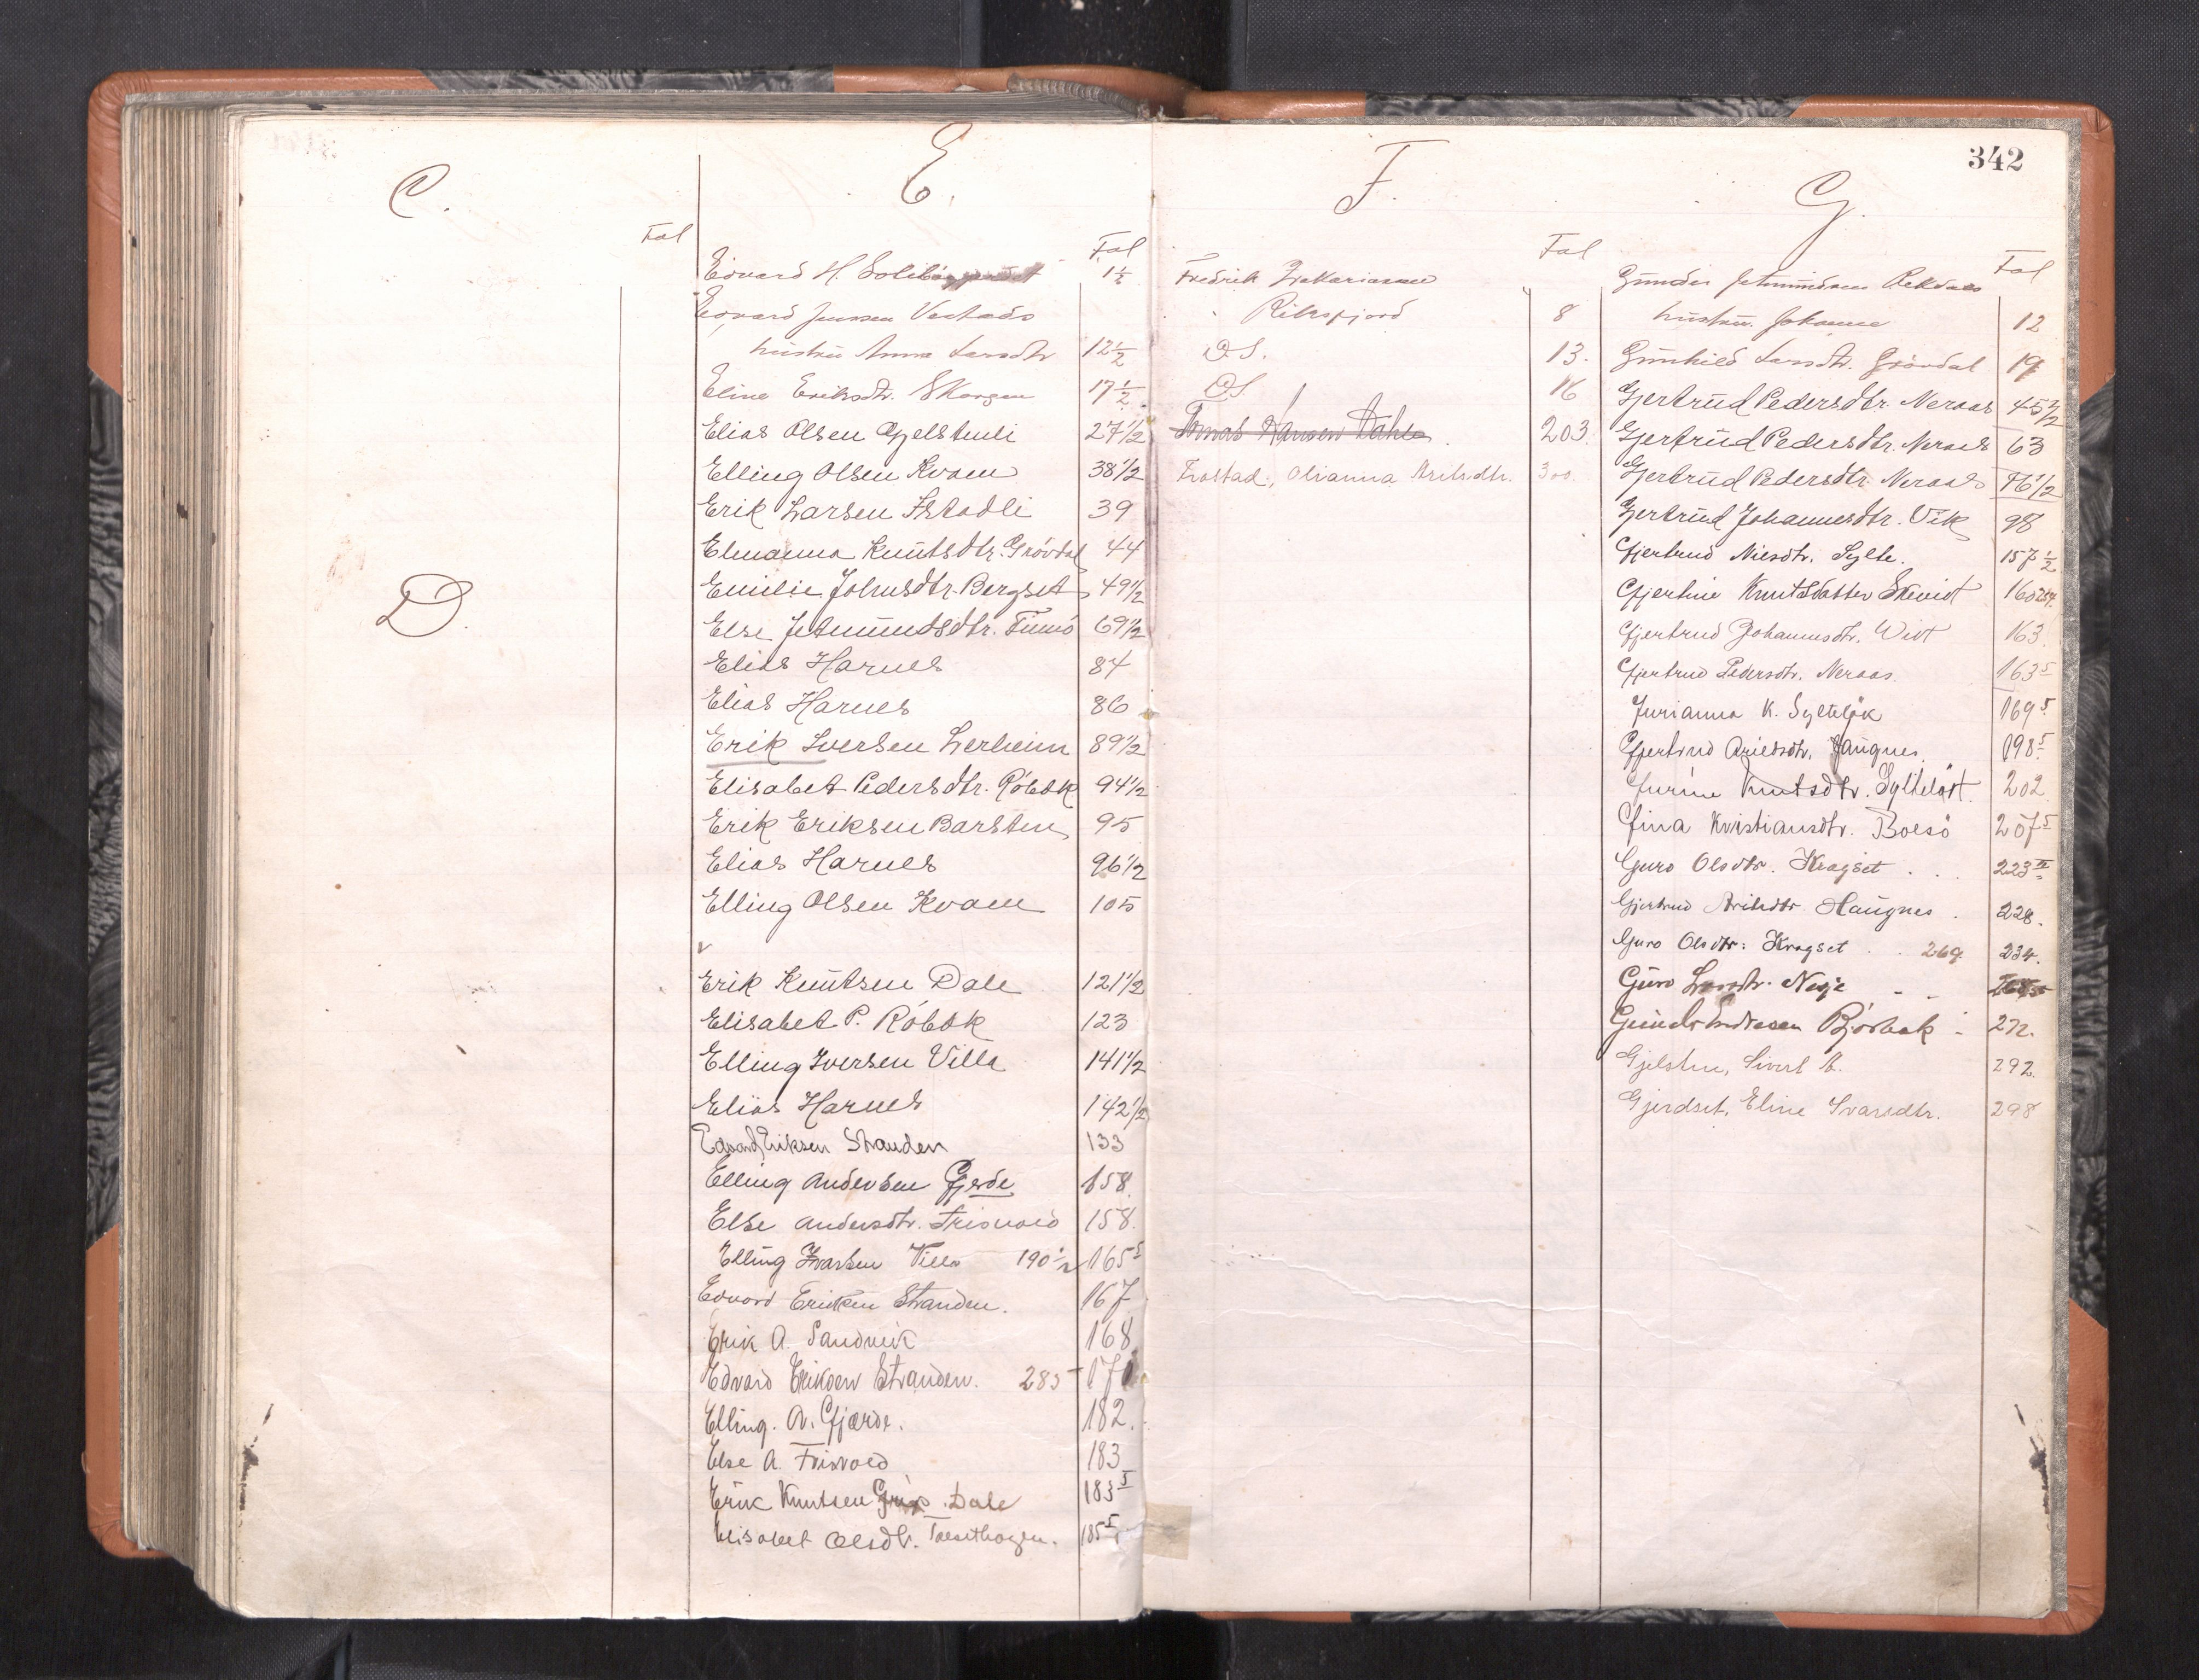 C.
Fol
D.
E.
Fol
Edvard H. 1½
Edvard Jenssen Vestads
hustru Anna Larsdtr 12½
Eline Eriksdtr. Skorgen 17½
Elias Olsen Gjelstenli 27½
Elling Olsen Kvam 38½
Erik Larsen Istadli 39
Elmanna Knutsdtr. Grövdal 44
Emilie Johnsdtr. Bergset 49½
Else Jetmundsdtr. Finnö 69½
Elias Harnes 84
Elias Harnes 86
Erik Iversen Lerheim 89½
Elisabet Pedersdtr. Röbök 94½
Erik Eriksen Barsten 95
Elias Harnes 96½
Elling Olsen Kvam 105
Erik Knutsen Dale 121½
Elisabet P. Röbök 123
Elling Iversen Villa 141½
Elias Harnes 142½
Edvard Eriksen Stranden 133
Elling Andersen Gjerde 158.
Else Andersdtr. Frisvold 158.
Elling Ivarsen Villa 190½ 165⁵
Edvard Eriksen Stranden. 167
Erik A. Sandveik 168
Edvard Eriksen Stranden. 285
Elling. A. Gjærde. 182.
Else A. Frisvold 183
Erik Knutsen Dale 183⁵
Elisabet Olsdtr. 185⁵
F.
Fol
Fredrik Zakariassen
Riksfjord 8
D.S. 13.
D.S. 16
Tomas Hansen Dahle. 203.
Frostad, Olianna Arilsdtr. 300.
342
G.
Fol
Gunder Jetmundsen Rekdals
hustru. Johanne 12
Gunhild Larsdtr. Grövdal 19
Gjertrud Pedersdtr. Neraas 45½
Gjertrud Pedersdtr. Neraas 63
Gjertrud Pedersdtr. Neraas 76½
Gjertrud Johannesdtr. Vik 98
Gjertrud Nilsdtr. Sylte. 157½
Gjertine Knutsdatter 160
Gjertrud Johannesdtr. 163
Gjertrud Pedersdtr. Neraas. 163⁵
Jurianna K. Sylteløk 169⁵
Gjertrud Arildsdtr. Haugnes. 198⁵
Jurine Knutsdtr. 202
Gina Kristiansdtr. Bolsö 207⁵
Guro Olsdtr. Kragset . . 223
Gjertrud Arilsdtr Haugnes . 228.
Guro Olsdtr: Kragset . . 269. 234.
Guro Larsdtr. Nesje - -
Gunder Endresen Björbæk - 272.
Gjelsten, Sivert A. 292.
Gjerdset, Eline Ivarsdtr. 298